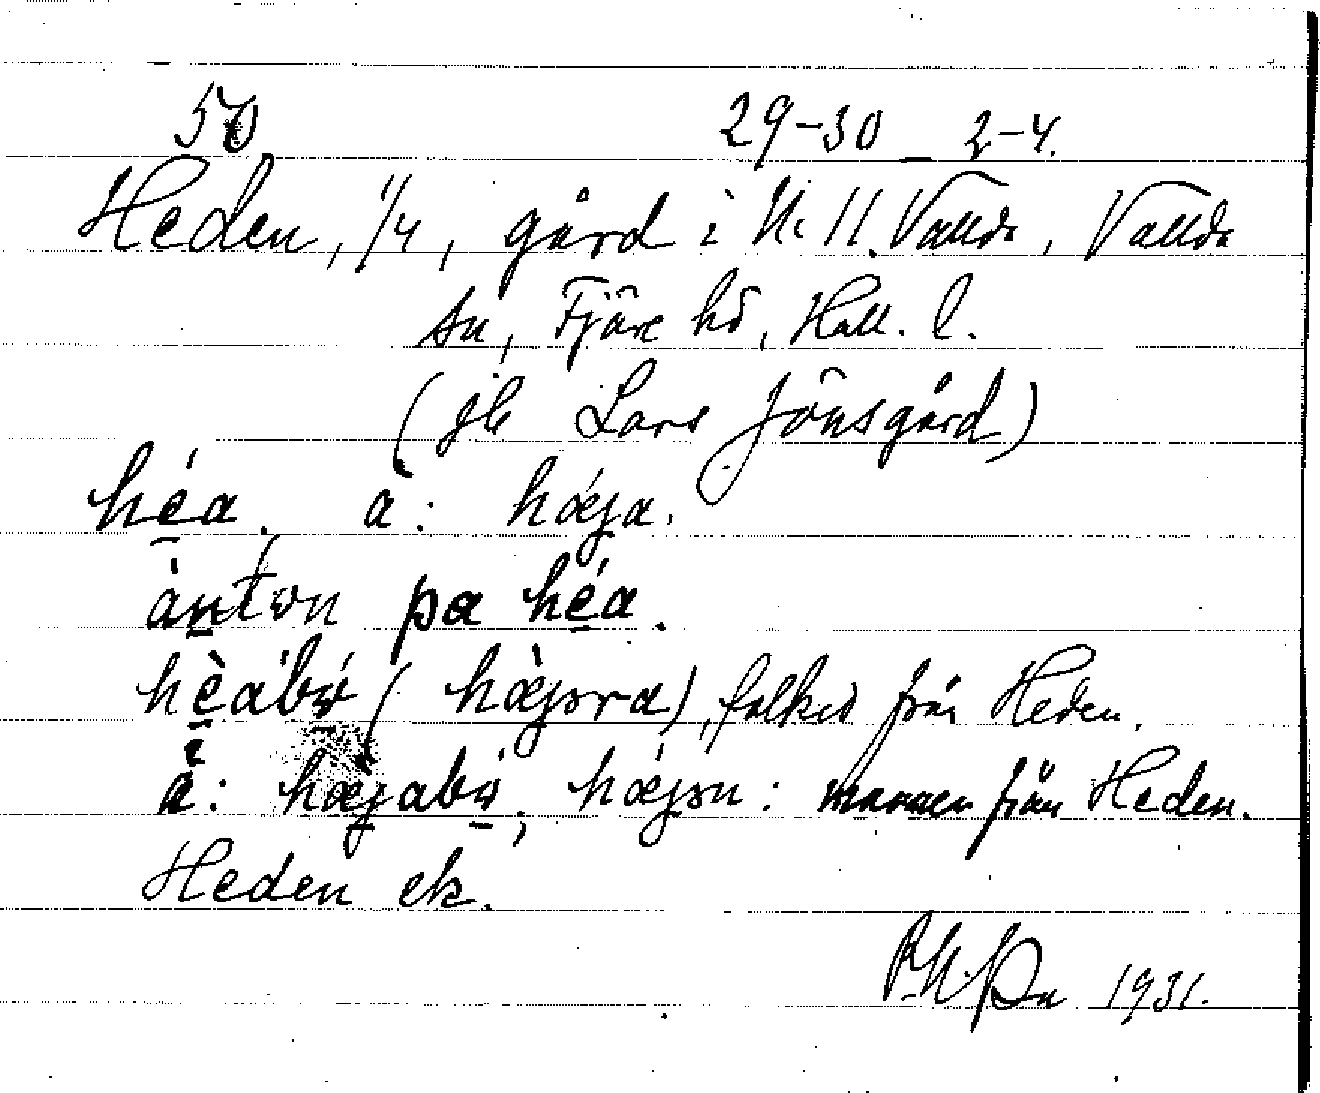 50 29-30 2-4.
Heden, 1/4, gård i Nr 11. Vallda, Vallda
sn, Fjäre hd, Hall. l.
(jb Lars Jönsgård)
héa. ä: hǽja.
ànton pa héa.
hèabų́ (hæ̀jora), folket från Heden.
ä: hæ̀jabų́; hæ̀jsn: mannen från Heden.
Heden ek.
1931.